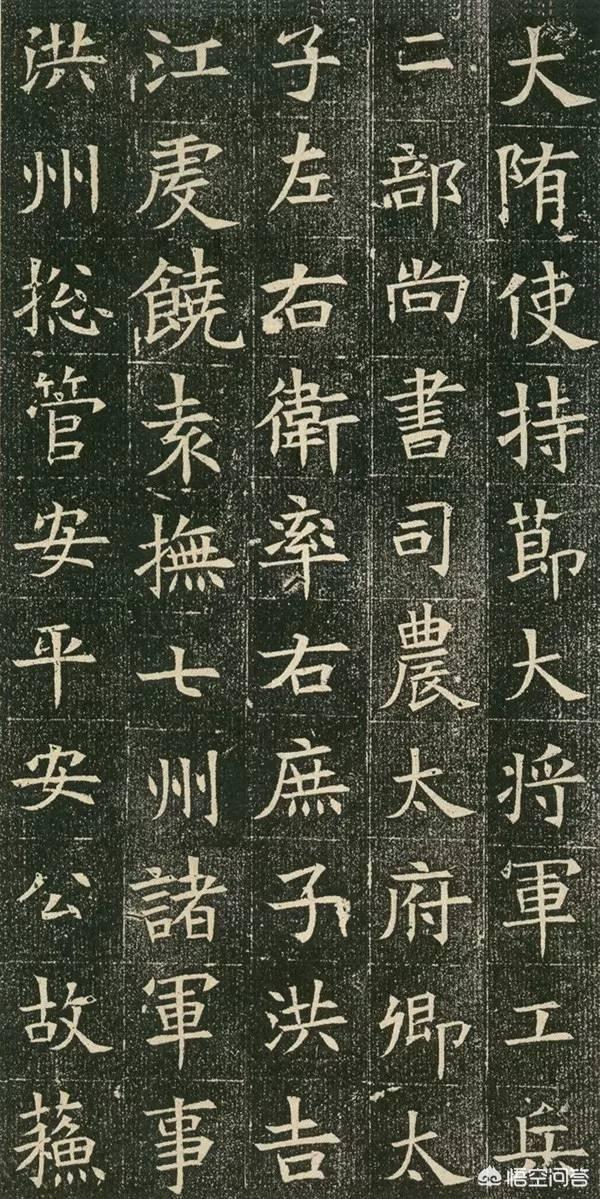 大陏使持莭大将軍工兵
二部尚書司農太府卿太
子左右衛率右庶子洪吉
江虔饒袁撫七州諸軍事
洪州揔管安平安公故蘓
悟空问答